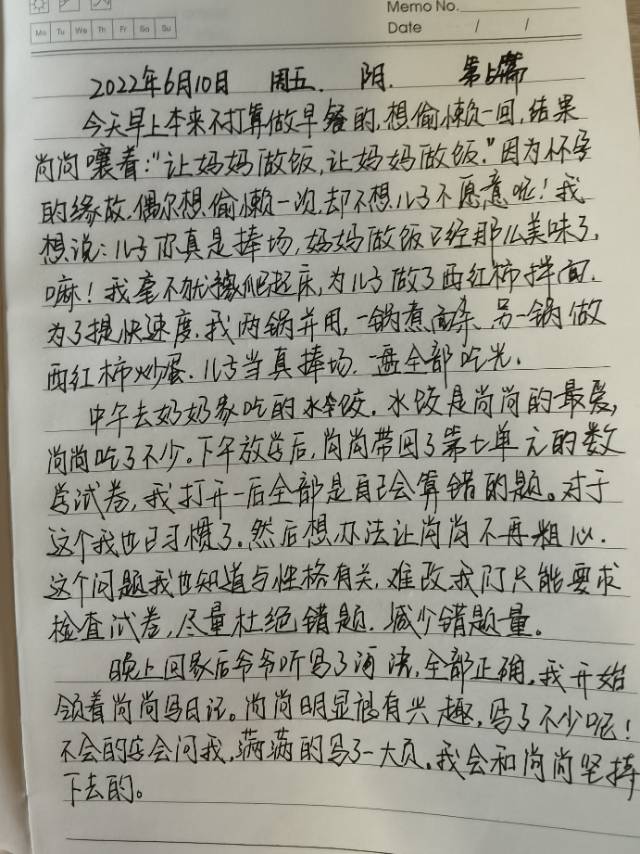 Memo No.
Mo Tu We Th Fr Sa Su
Date / /
2022年6月10日 周五. 阴. 第5篇
今天早上本来不打算做早餐的,想偷懒一回,结果
尚尚嚷着:“让妈妈做饭,让妈妈做饭.”因为怀孕
的缘故,偶尔想偷懒一次,却不想儿子不愿意呢!我
想说:儿子你真是捧场,妈妈做饭已经那么美味了,
嘛!我毫不犹豫爬起床,为儿子做了西红柿拌面.
为了提快速度,我两锅并用,一锅煮面条、另一锅做
西红柿炒蛋.儿子当真捧场.一盘全部吃光.
中午去奶奶家吃的水饺.水饺是尚尚的最爱,
尚尚吃了不少。下午放学后,尚尚带回了第七单元的数
学试卷,我打开一后全部是自己会算错的题。对于
这个我也已习惯了.然后想办法让尚尚不再粗心.
这个问题我也知道与性格有关,难改.我们只能要求
检查试卷,尽量杜绝错题.减少错题量。
晚上回家后爷爷听写了词语,全部正确,我开始
领着尚尚写日记。尚尚明显很有兴趣,写了不少呢!
不会的字会问我,满满的写了一大页.我会和尚尚坚持
下去的。